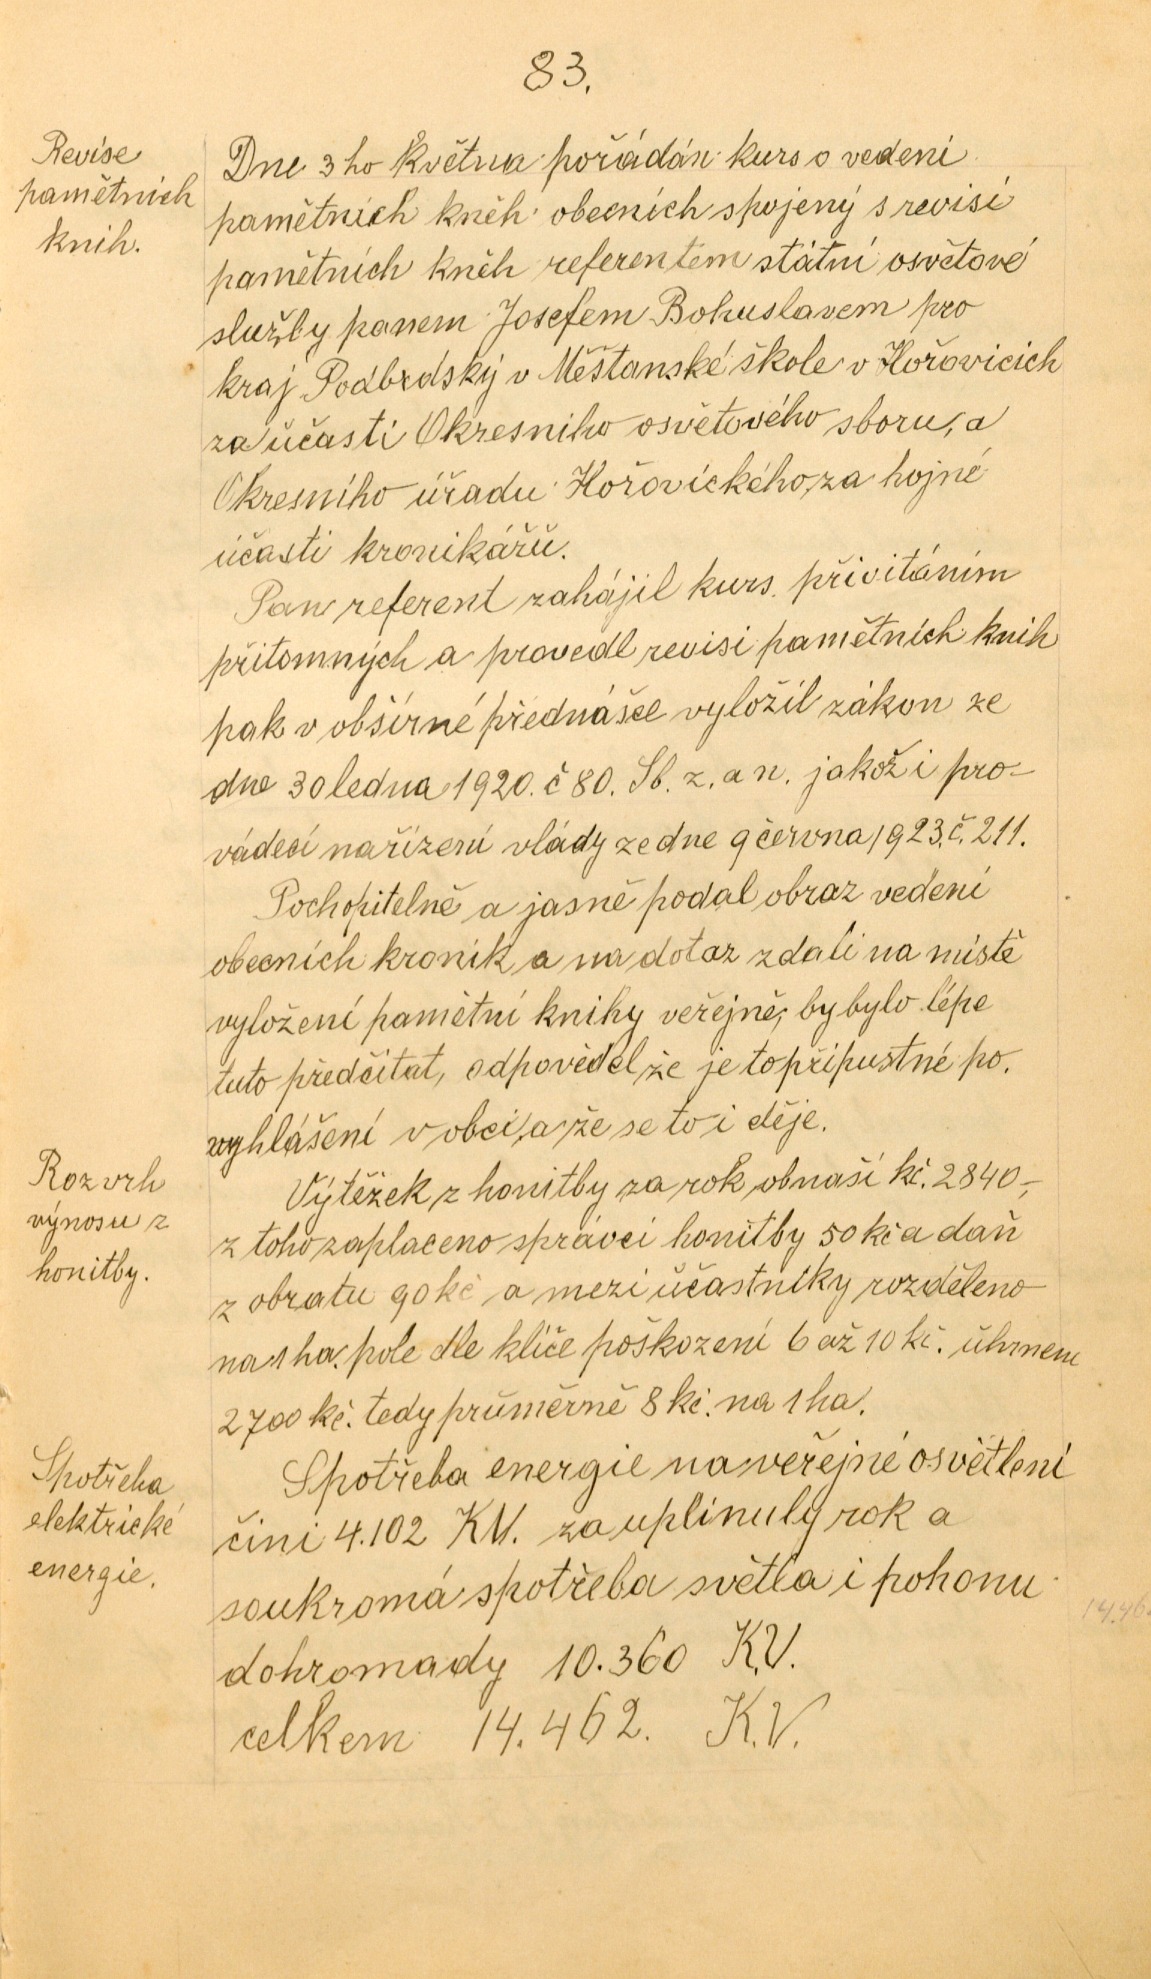 83.
Revise
pamětních
knih.
Dne 3ho Května pořádán kurs o vedení
pamětních kněh obecních spojený s revisí
pamětních kněh referentem státní osvětové
služby panem Josefem Bohuslavem pro
kraj Podbrdský v Měšťanské škole v Hořovicích
za účasti Okresního osvětového sboru, a
Okresního úřadu Hořovického, za hojné
účasti kronikářů.
Pan referent zahájil kurs přivítáním
přítomných a provedl revisi pamětních knih
pak v obšírné přednášce vyložil zákon ze
dne 30 ledna 1920. č 80. Sb. z. a n. jakož i pro-
váděcí nařízení vlády ze dne 9 června 1923. č. 211.
Pochopitelně a jasně podal obraz vedení
obecních kronik a na dotaz zdali na místě
vyložení pamětní knihy veřejně, by bylo lépe
tuto předčítat, odpověděl, že je to přípustné po.
vyhlášení v obci, a že se to i děje.
Rozvrh
výnosu z
honitby.
Výtěžek z honitby za rok obnaší kč. 2840,-
z toho zaplaceno správci honitby 50 kč a daň
z obratu 90 kč a mezi účastníky rozděleno
na 1 ha. pole dle klíče poškození 6 až 10 kč. úhrnem
2700 kč. tedy průměrně 8 kč. na 1 ha.
Spotřeba
elektrické
energie.
Spotřeba energie na veřejné osvětlení
činí 4.102 K.V. za uplínulý rok a
soukromá spotřeba světla i pohonu
dohromady 10.360 K.V.
celkem 14.462. K.V.